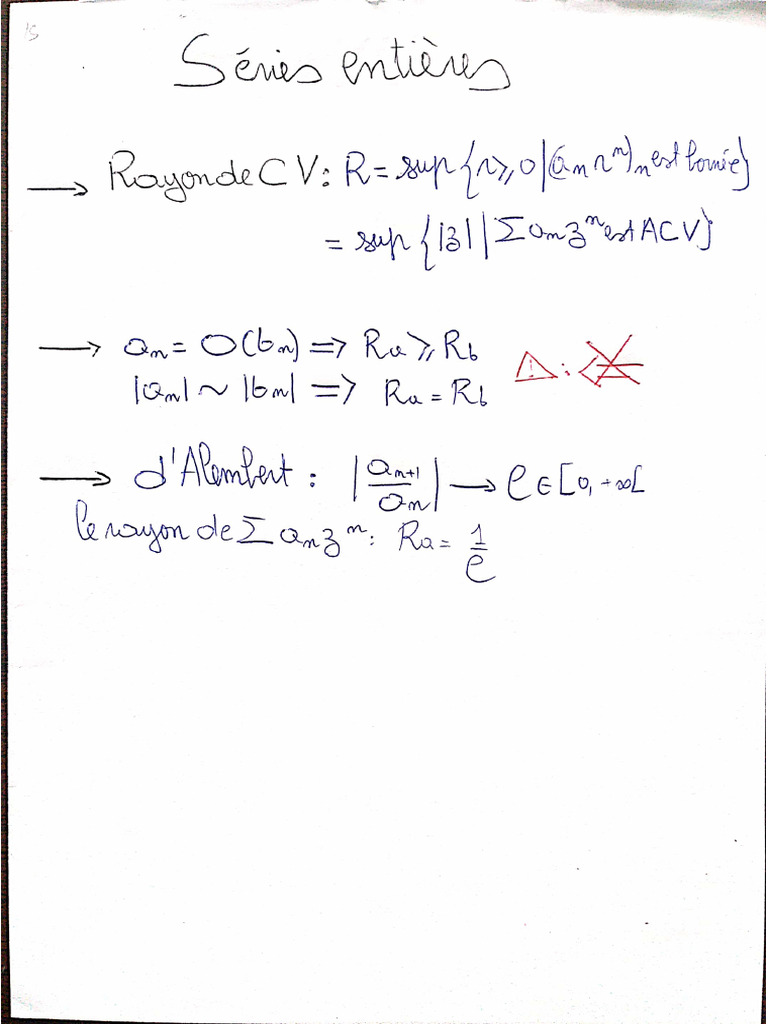 15
Séries entières
→ Rayon de CV : R = sup{r ⩾ 0 | (aₙ rⁿ)ₙ est bornée}
= sup{|z| | Σ aₙ zⁿ est ACV}
→ aₙ = O(bₙ) => Ra ⩾ Rb
|aₙ| ~ |bₙ| => Ra = Rb
⚠ : <=
→ d'Alembert : |aₙ₊₁/aₙ| → ℓ ∈ [0, +∞[
le rayon de Σ aₙ zⁿ : Ra = 1/ℓ